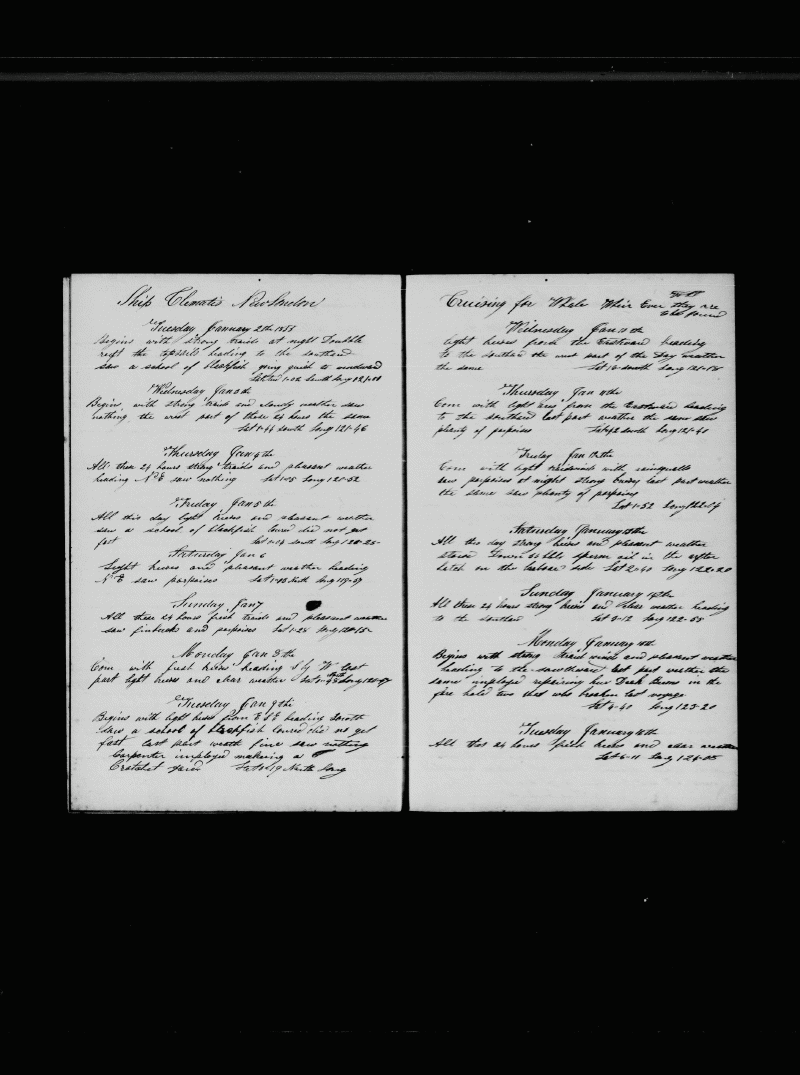 Ship Clematis New London
Tuesday January 2th 1855
Begins with strong traids at night Doubble
reeft the topsails heading to the southard
saw a school of blackfish going quick to windward
South Long
Wednesday Jan 3th
Begins with strong traids and cloudy weather saw
nothing the wrest part of these 24 hours the same
Lat 1-44 South Long 125-46
Thursday Jan 4th
All these 24 hours strong traids and pleasant weather
heading N E saw nothing Lat 1-05 Long 125-52
Friday Jan 5th
All this day light brises and pleasant weather
saw a school of blackfish lowred did not get
fast Lat South Long 120-25
Saturday Jan 6
Light brises and pleasant weather heading
N E saw porpoises Lat North Long
Sunday Jan 7
All these 24 hours fresh traids and pleasant weather
saw finbacks and porpoises Lat 1-25 Long
Monday Jan 8th
Com with fresh brises heading S by W last
part light brises and clear weather Lat North Long
Tuesday Jan 9th
Begins with light brises from E S E heading South
Saw a school of blackfish lowred did no get
fast Last part weath fine saw nothing
Carpenter imployed makeing a
Lat North Long
Cruising for Whale Whir Ever they are
to be found
Wednesday Jan 10th
light brises from the Eastward heading
to the southard the wrest part of the Day weather
the same Lat South Long 121-15
Thursday Jan 11th
Com with light airs from the Eastward heading
to the southard last part weather the same saw
plenty of porpoises Lat South Long 121-40
Friday Jan 12th
Com with light tradewinds with rainsqualls
saw porpoises at night strong breeze last part weather
the same saw plenty of porpoises
Lat 1-52 Long
Saturday January 13th
All this day strong brises and pleasant weather
stowed Down bbls sperm oil in the after
hatch on the side Lat 2-40 Long 122-20
Sunday January 14th
All these 24 hours strong brises and clear weather heading
to the southard Lat 3-12 Long 122-55
Monday January 15th
Begins with strong traid winds and pleasant weather
heading to the southward last part weather the
same imployed repairing her Deck beems in the
fore hold two that was broken last voyage
Lat 4-40 Long 123-20
Tuesday January 16th
All this 24 hours fresh brises and clear weather
Lat 6-11 Long 126-05